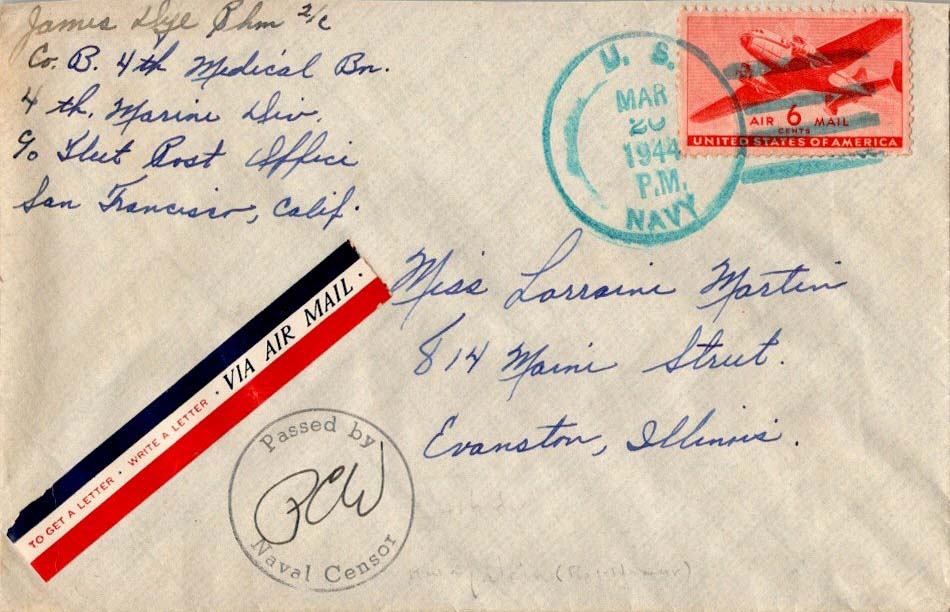 James Dye Phm 2/c
Co. B. 4th Medical Bn.
4th. Marine Div.
c/o Fleet Post Office
San Francisco, Calif.
U. S.
MAR
20
1944
P.M.
NAVY
AIR 6 MAIL
CENTS
UNITED STATES OF AMERICA
Miss Lorraine Martin
814 Maine Street.
Evanston, Illinois.
TO GET A LETTER · WRITE A LETTER · VIA AIR MAIL ·
Passed by
PCW
Naval Censor